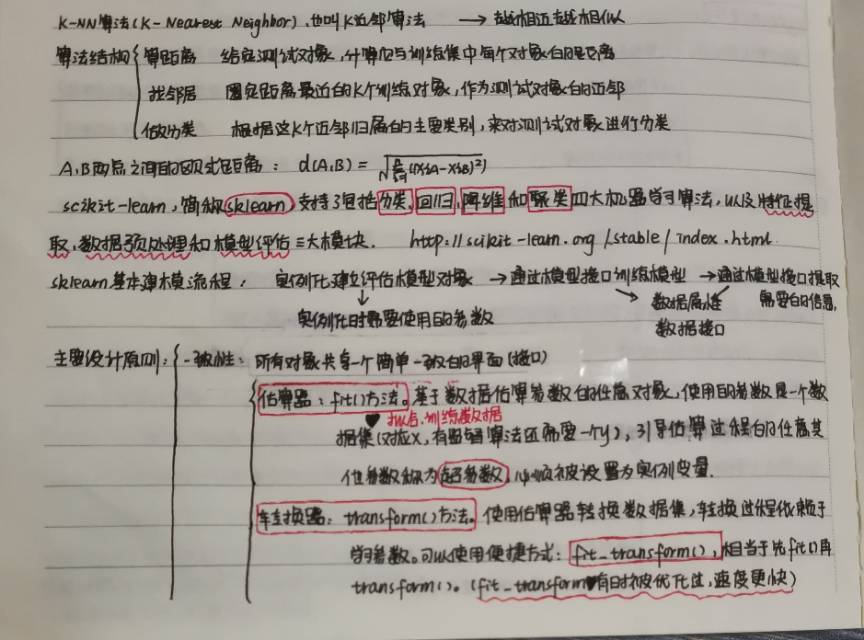 K-NN算法(K-Nearest Neighbor),也叫K近邻算法 → 越相近越相似
算法结构 算距离 给定测试对象,计算它与训练集中每个对象的距离
找邻居 圈定距离最近的K个训练对象,作为测试对象的近邻
做分类 根据这K个近邻归属的主要类别,来对测试对象进行分类
A,B两点之间的欧式距离: d(A,B) = √∑((XiA-XiB)²)
scikit-learn,简称sklearn,支持了包括分类,回归,降维和聚类四大机器学习算法,以及特征提
取,数据预处理和模型评估三大模块. http://scikit-learn.org/stable/index.html
sklearn基本建模流程: 实例化建立评估模型对象 → 通过模型接口训练模型 → 通过模型接口提取
实例化时需要使用的参数 数据属性 需要的信息,
数据接口
主要设计原则: 一致性: 所有对象共享一个简单一致的界面(接口)
估算器: fit()方法。基于数据估算参数的任意对象,使用的参数是一个数
拟合.训练数据
据集(对应X,有监督算法还需要一个y),引导估算过程的任意其
他参数称为超参数,必须被设置为实例变量.
转换器: transform()方法。使用估算器转换数据集,转换过程依赖于
学习参数。可以使用便捷方式: fit_transform(),相当于先fit()再
transform()。(fit_transform有时被优化过,速度更快)